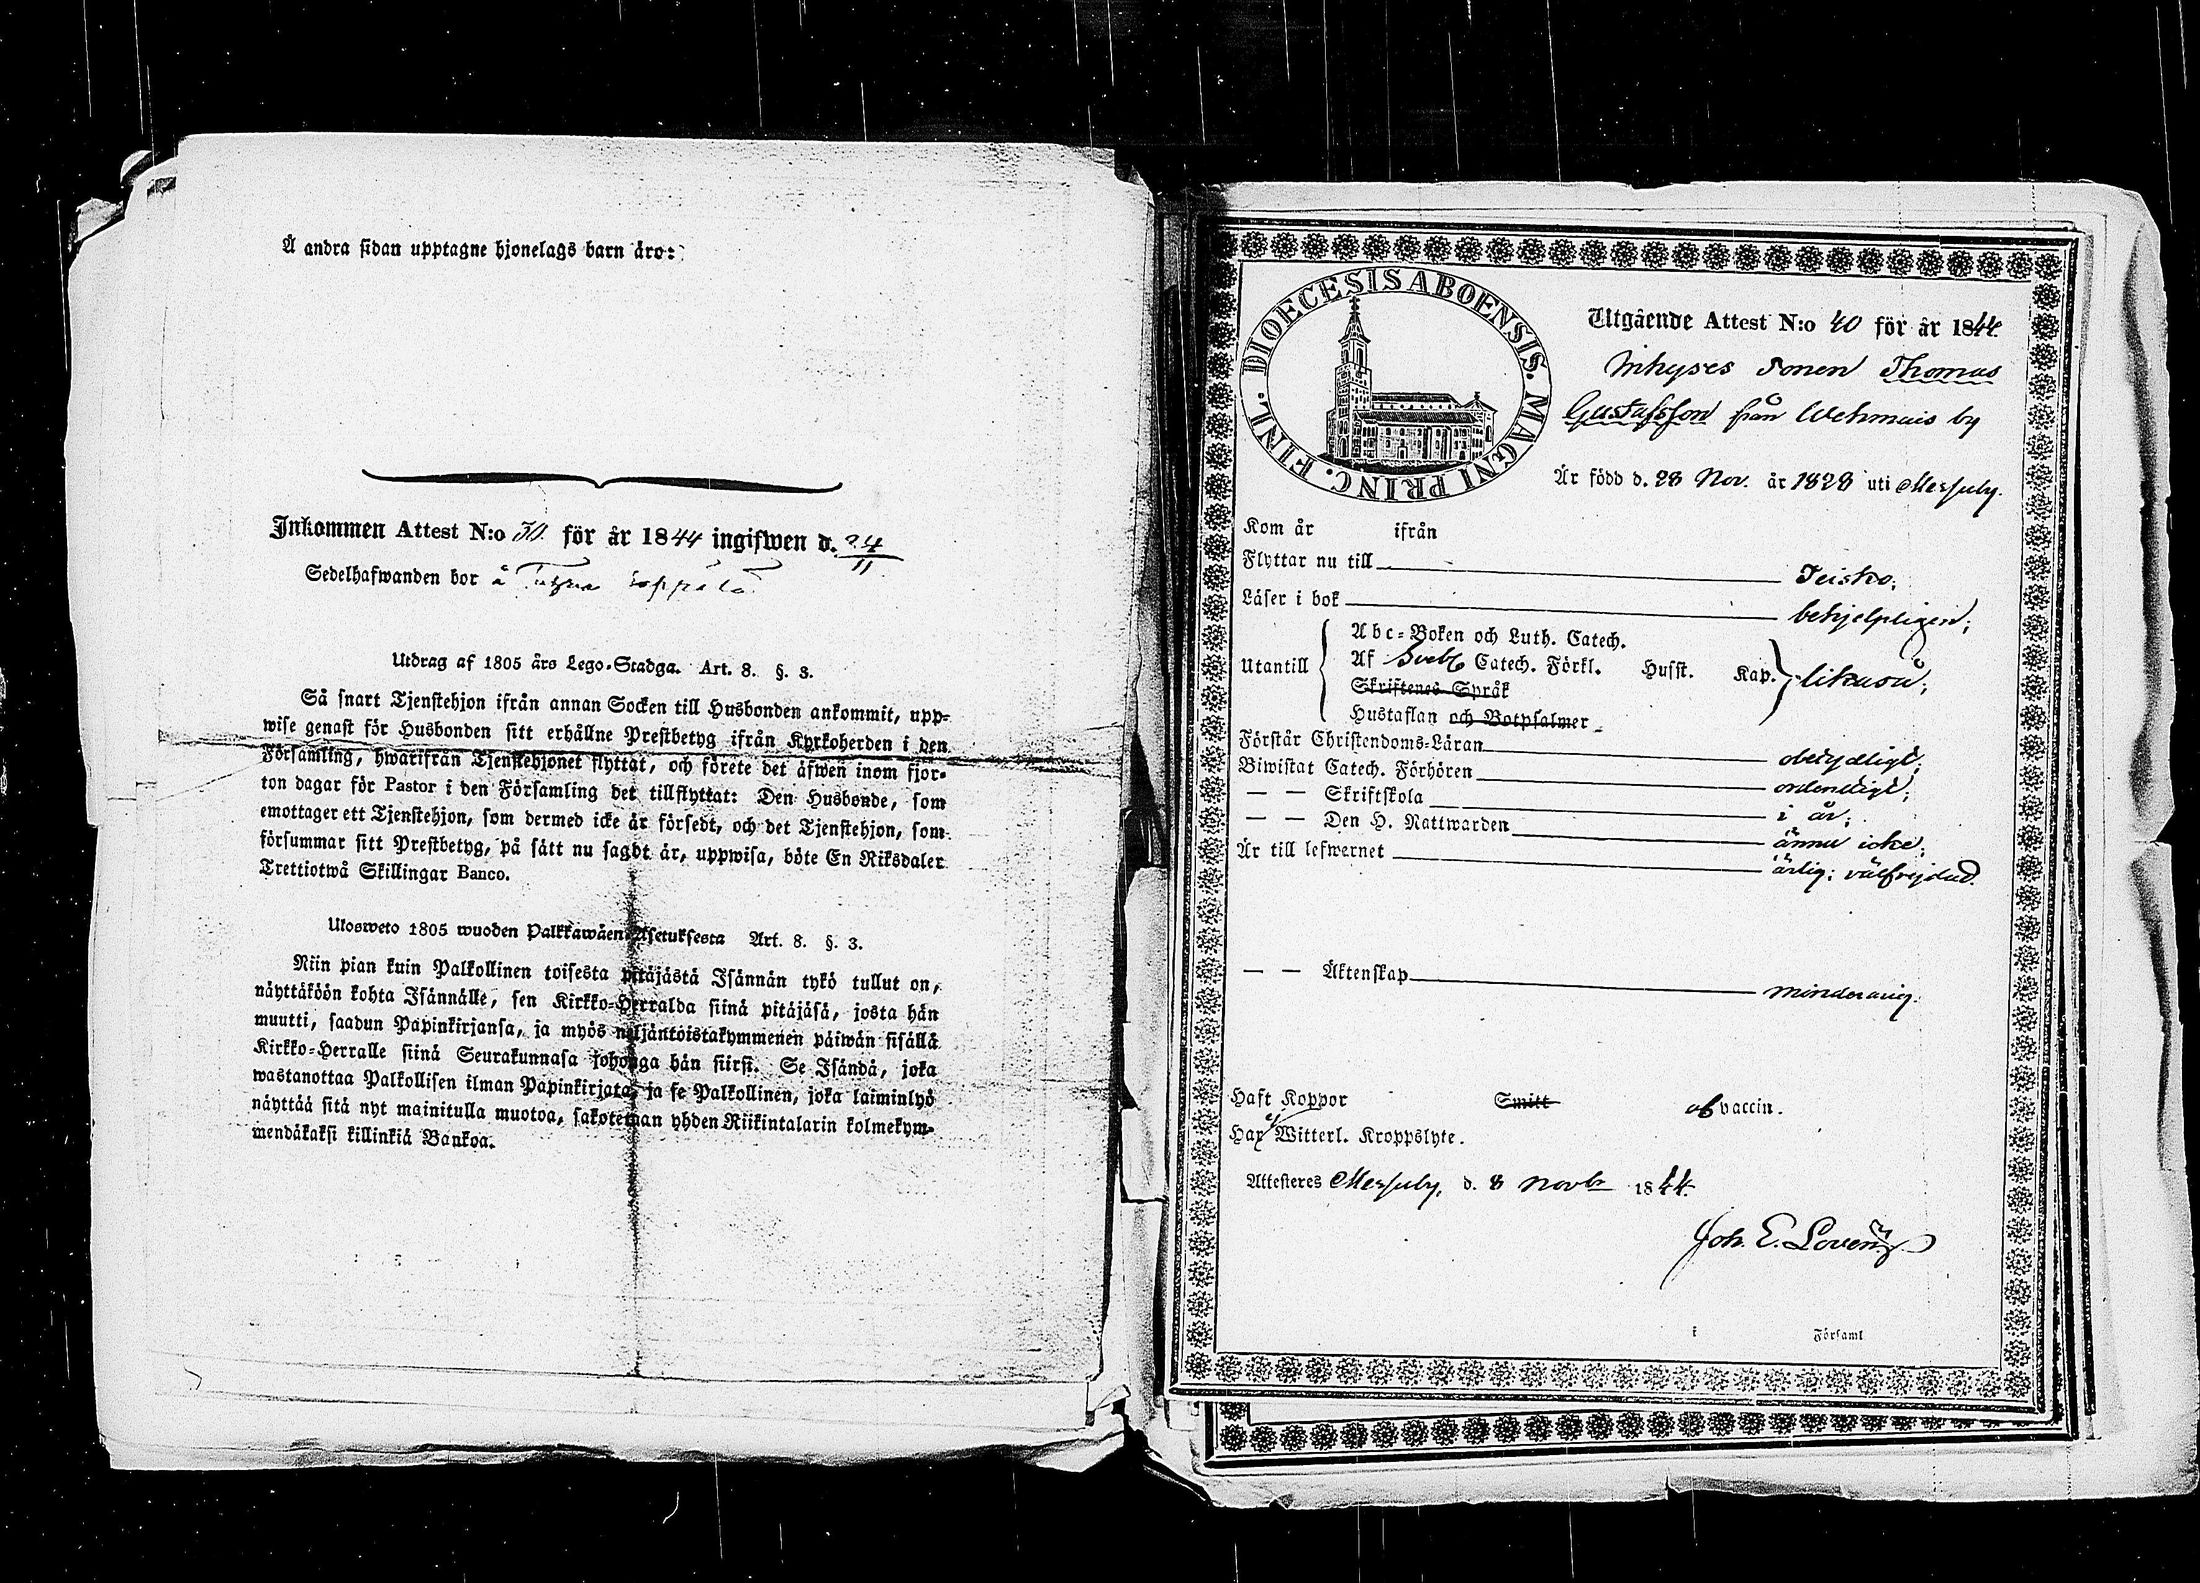 Å andra sidan upptagne hjonelags barn äro:
Inkommen Attest N:o 30. för år 1844 ingifwen d. 24/11
Sedelhafwanden bor å
Utdrag af 1805 års Lego-Stadga. Art. 8. §. 3.
Så snart Tjenstehjon ifrån annan Socken till Husbonden ankommit, upp-
wise genast för Husbonden sitt erhållne Prestbetyg ifrån Kyrkoherden i den
Församling, hwarifrån Tjenstehjonet flyttat, och förete det äfwen inom fjor-
ton dagar för Pastor i den Församling det tillflyttat: Den Husbonde, som
emottager ett Tjenstehjon, som dermed icke är försedt, och det Tjenstehjon, som
försummar sitt Prestbetyg, på sätt nu sagdt är, uppwisa, böte En Riksdaler
Trettiotwå Skillingar Banco.
Ulosweto 1805 wuoden Palkkawäen Asetuksesta Art. 8. §. 3.
Niin pian kuin Palkollinen toisesta pitäjästä Isännän tykö tullut on,
näyttäköön kohta Isännälle, sen Kirkko-Herralda siinä pitäjäsä, josta hän
muutti, saadun Papinkirjansa, ja myös neljäntoistakymmenen päiwän sisällä
Kirkko-Herralle siinä Seurakunnasa johonga hän siirsi. Se Isändä, joka
wastanottaa Palkollisen ilman Papinkirjata, ja se Palkollinen, joka laiminlyö
näyttää sitä nyt mainitulla muotoa, sakotetaan yhden Riikintalarin kolmekym-
mendäkaksi killinkiä Bankoa.
DIOECESIS ABOENSIS. MAGNI PRINC. FINL.
Utgående Attest N:o 40 för år 1844.
Inhyses sonen Thomas
Gustafsson från Wehmais by
Är född d. 28 Nov. år 1828 uti Messuby.
Kom år ifrån
Flyttar nu till Teisko;
Läser i bok behjelpligen;
Utantill Abc-Boken och Luth. Catech.
Af Sveb. Catech. Förkl. Husst. Kap. likaså;
Skriftenes Språk
Hustaflan och Botpsalmer
Förstår Christendoms-Läran obetydligt;
Biwistat Catech. Förhören ordentligt;
— — Skriftskola i år;
— — Den H. Nattwarden ännu icke;
Är till lefwernet ärlig; välfrejdad.
— — Äktenskap minderårig.
Haft Koppor Smitt af vaccin.
Har ej Witterl. Kroppslyte.
Attesteres Messuby, d. 8 Novbr 1844.
Joh. E. Lovén
i Församl